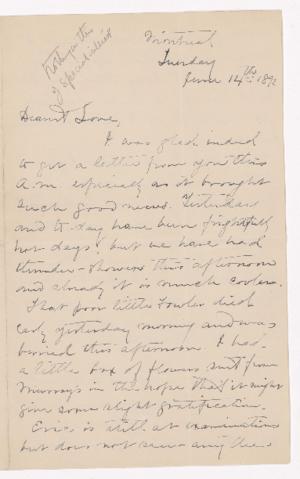 Nothing in this
of special interest
Montreal
Tuesday
June 14th 1892
Dearest Love,
I was glad indeed
to get a letter from you this
a.m. especially as it brought
such good news. Yesterday
and to-day have been frightfully
hot days! but we have had
thunder-showers this afternoon
and already it is much cooler.
That poor little Fowler died
early yesterday morning and was
buried this afternoon. I had
a little box of flowers sent from
Murray's in the hope that it might
give some slight gratification.
Eric is still at examinations
but does not seem any the